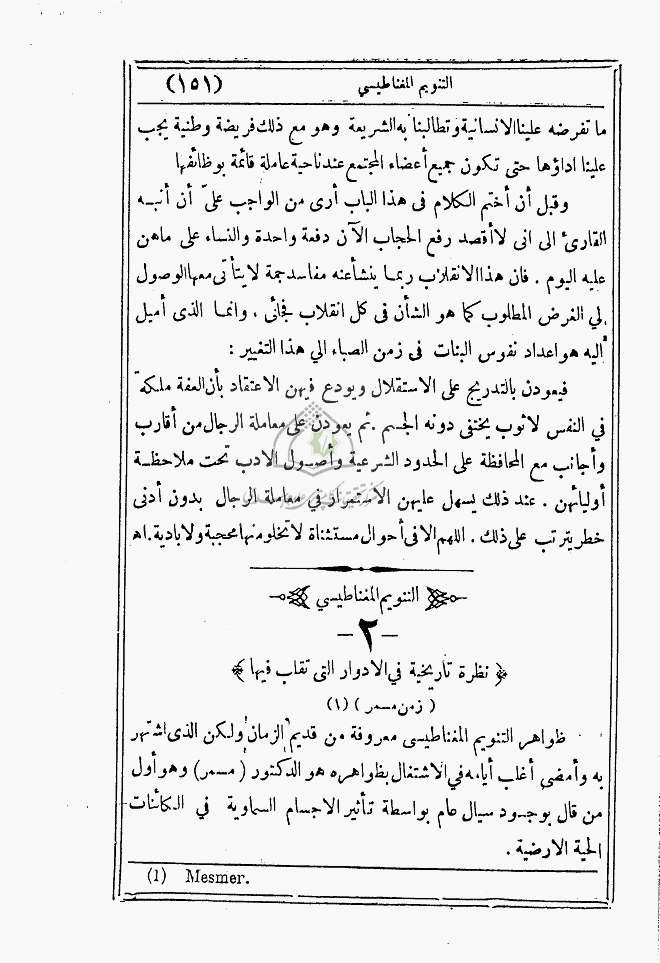 التنويم المغناطيسي (١٥١)
ما تفرضه علينا الانسانية وتطالبنا به الشريعة وهو مع ذلك فريضة وطنية يجب
علينا اداؤها حتى تكون جميع أعضاء المجتمع عندنا حية عاملة قائمة بوظائفها
وقبل أن أختم الكلام فى هذا الباب أرى من الواجب علىّ أن أنبه
القارئ الى انى لا أقصد رفع الحجاب الآن دفعة واحدة والنساء على ماهن
عليه اليوم . فان هذا الانقلاب ربما ينشأ عنه مفاسد جمة لا يتأتى معها الوصول
لي الغرض المطلوب كما هو الشأن فى كل انقلاب فجائى . وانما الذى أميل
اليه هو اعداد نفوس البنات فى زمن الصباء الي هذا التغيير :
فيعودن بالتدريج على الاستقلال ويودع فيهن الاعتقاد بأن العفة ملكة
في النفس لا ثوب يختفى دونه الجسم . ثم يعودن على معاملة الرجال من أقارب
وأجانب مع المحافظة على الحدود الشرعية وأصول الادب تحت ملاحظة
أوليائهن . عند ذلك يسهل عليهن الاستمرار في معاملة الرجال بدون أدنى
خطر يترتب على ذلك . اللهم الا فى أحوال مستثناة لا تخلو منها محجبة ولا بادية . اه
التنويم المغناطيسي
— ٢ —
﴿ نظرة تاريخية في الادوار التى تقلب فيها ﴾
( زمن مسمر ) (١)
ظواهر التنويم المغناطيسى معروفة من قديم الزمان ولكن الذى اشتهر
به وأمضى أغلب أيامه في الاشتغال بظواهره هو الدكتور ( مسمر ) وهو أول
من قال بوجود سيال عام بواسطة تأثير الاجسام السماوية في الكائنات
الحية الارضية .
(1) Mesmer.